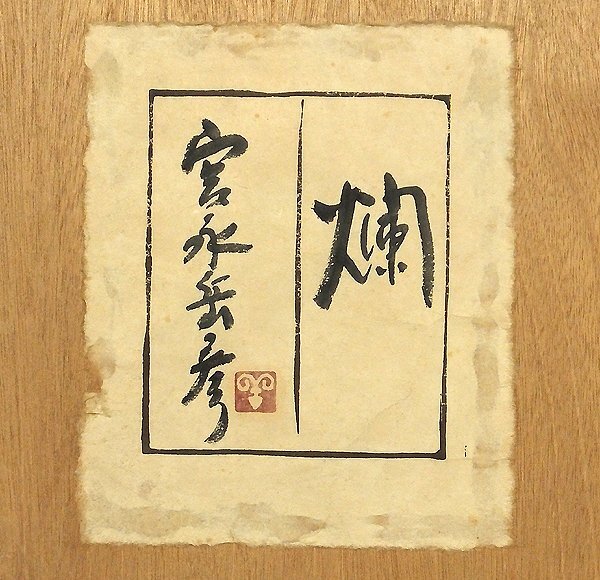 爛
宮永岳彦